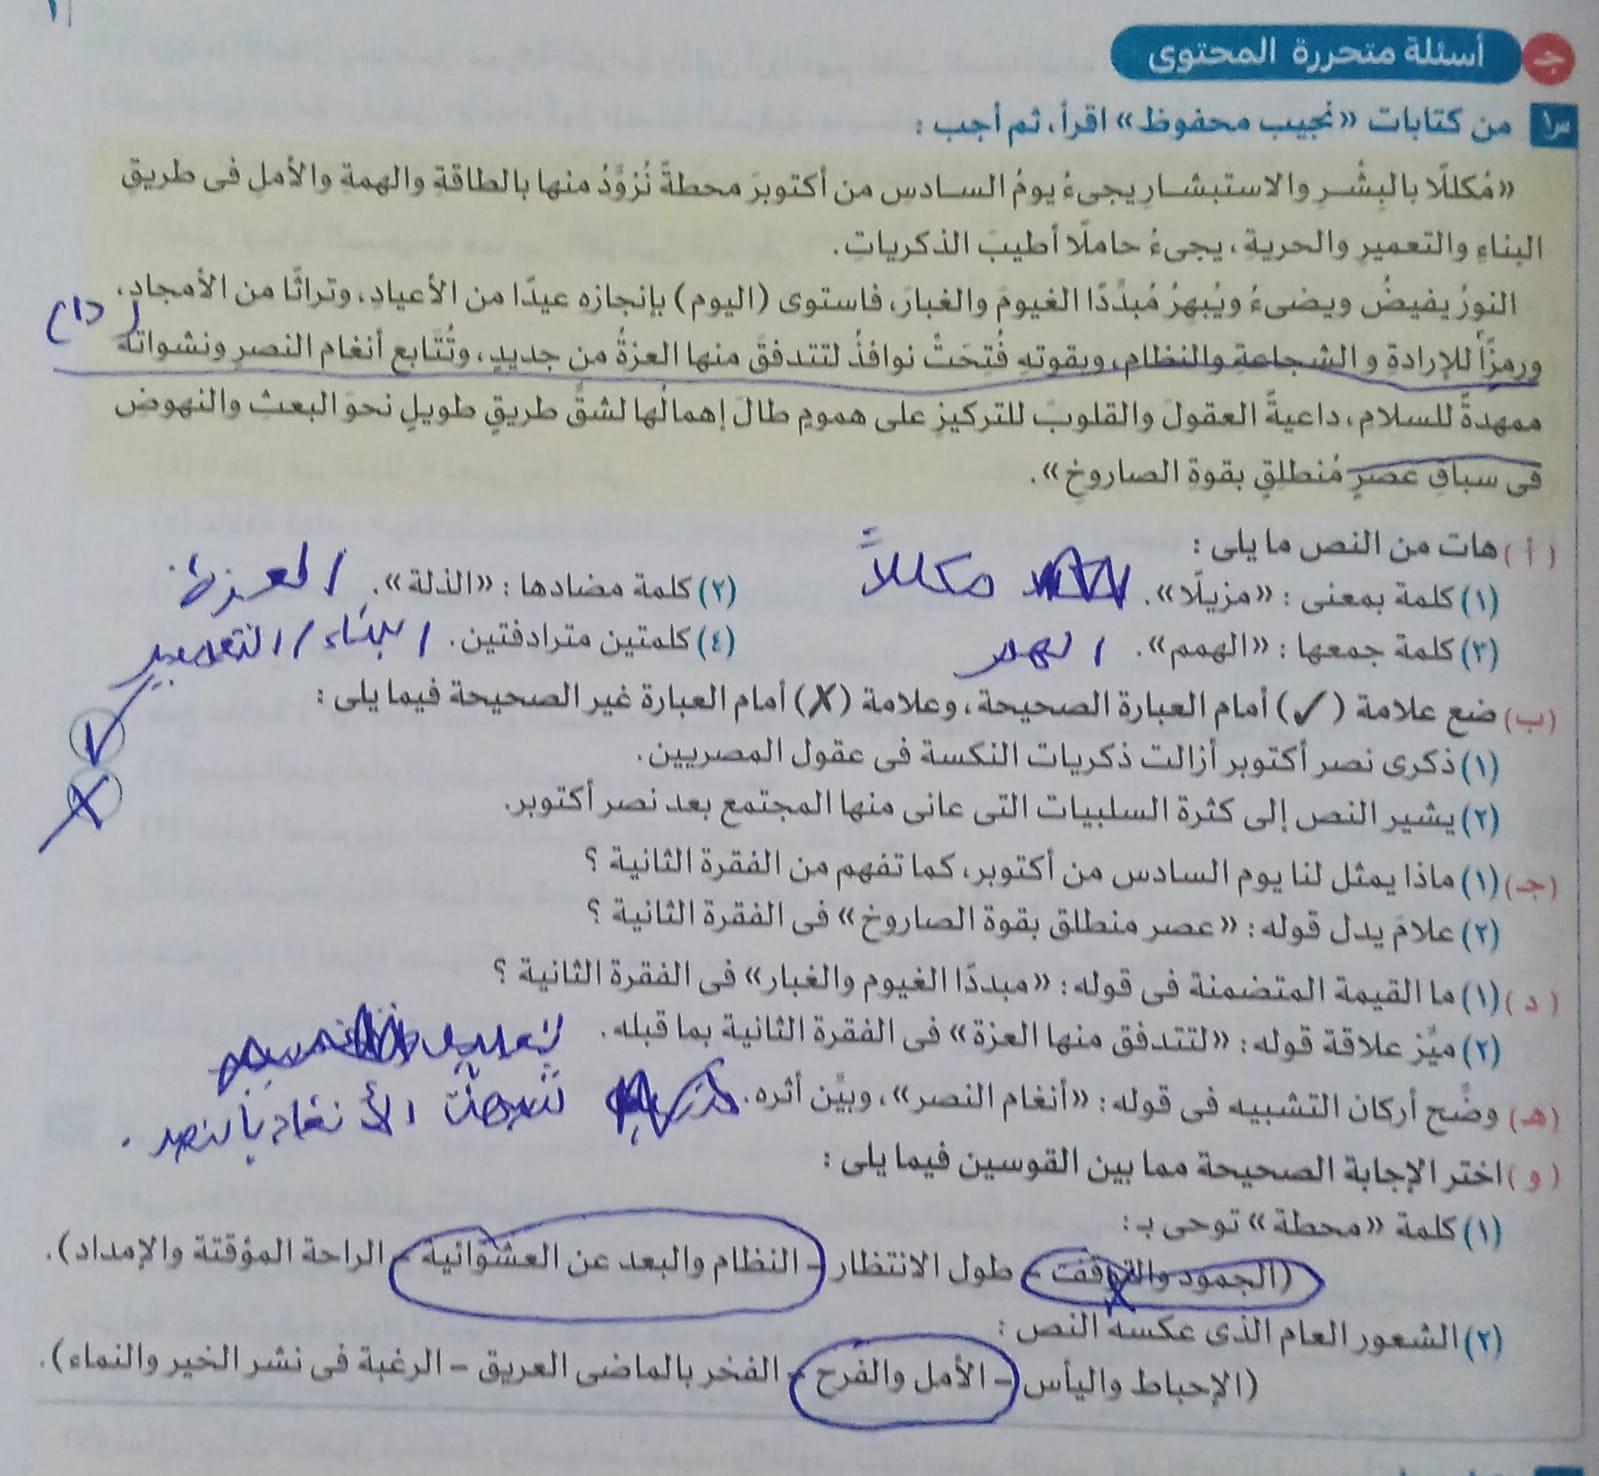 ج أسئلة متحررة المحتوى
س١ من كتابات «نجيب محفوظ» اقرأ، ثم أجب :
«مُكللًا بالبِشْرِ والاستبشارِ يجىءُ يومُ السادسِ من أكتوبرَ محطةً نُزوَّدُ منها بالطاقةِ والهمةِ والأملِ فى طريقِ
البناءِ والتعميرِ والحريةِ، يجىءُ حاملًا أطيبَ الذكرياتِ.
النورُ يفيضُ ويضىءُ ويُبهرُ مُبدِّدًا الغيومَ والغبارَ، فاستوى (اليوم) بإنجازه عيدًا من الأعيادِ، وتراثًا من الأمجادِ،
ورمزًا للإرادةِ والشجاعةِ والنظامِ، وبقوتهِ فُتِحَتْ نوافذُ لتتدفقَ منها العزةُ من جديدٍ، وتُتَابع أنغام النصرِ ونشواته
ممهدةً للسلام، داعيةً العقولَ والقلوبَ للتركيزِ على همومٍ طالَ إهمالُها لشقِّ طريقٍ طويلٍ نحوَ البعثِ والنهوضِ
فى سباقِ عصرٍ مُنطلقٍ بقوة الصاروخِ».
(أ) هات من النص ما يلى :
(١) كلمة بمعنى : «مزيلًا». مكللاً (٢) كلمة مضادها : «الذلة». العزة
(٣) كلمة جمعها : «الهمم». (٤) كلمتين مترادفتين. البناء / التعمير
(ب) ضع علامة (✓) أمام العبارة الصحيحة، وعلامة (✗) أمام العبارة غير الصحيحة فيما يلى : ✓
(١) ذكرى نصر أكتوبر أزالت ذكريات النكسة فى عقول المصريين.
(٢) يشير النص إلى كثرة السلبيات التى عانى منها المجتمع بعد نصر أكتوبر. ✗
(جـ) (١) ماذا يمثل لنا يوم السادس من أكتوبر، كما تفهم من الفقرة الثانية ؟
(٢) علامَ يدل قوله : «عصر منطلق بقوة الصاروخ» فى الفقرة الثانية ؟
(د) (١) ما القيمة المتضمنة فى قوله : «مبددًا الغيوم والغبار» فى الفقرة الثانية ؟
(٢) ميِّز علاقة قوله : «لتتدفق منها العزة» فى الفقرة الثانية بما قبله. تعليل
(هـ) وضِّح أركان التشبيه فى قوله : «أنغام النصر»، وبيِّن أثره. شبهت الأنغام بالنصر .
(و) اختر الإجابة الصحيحة مما بين القوسين فيما يلى :
(١) كلمة «محطة» توحى بـ :
(الجمود والتوقف – طول الانتظار – النظام والبعد عن العشوائية – الراحة المؤقتة والإمداد).
(٢) الشعور العام الذى عكسه النص :
(الإحباط واليأس – الأمل والفرح – الفخر بالماضى العريق – الرغبة فى نشر الخير والنماء).